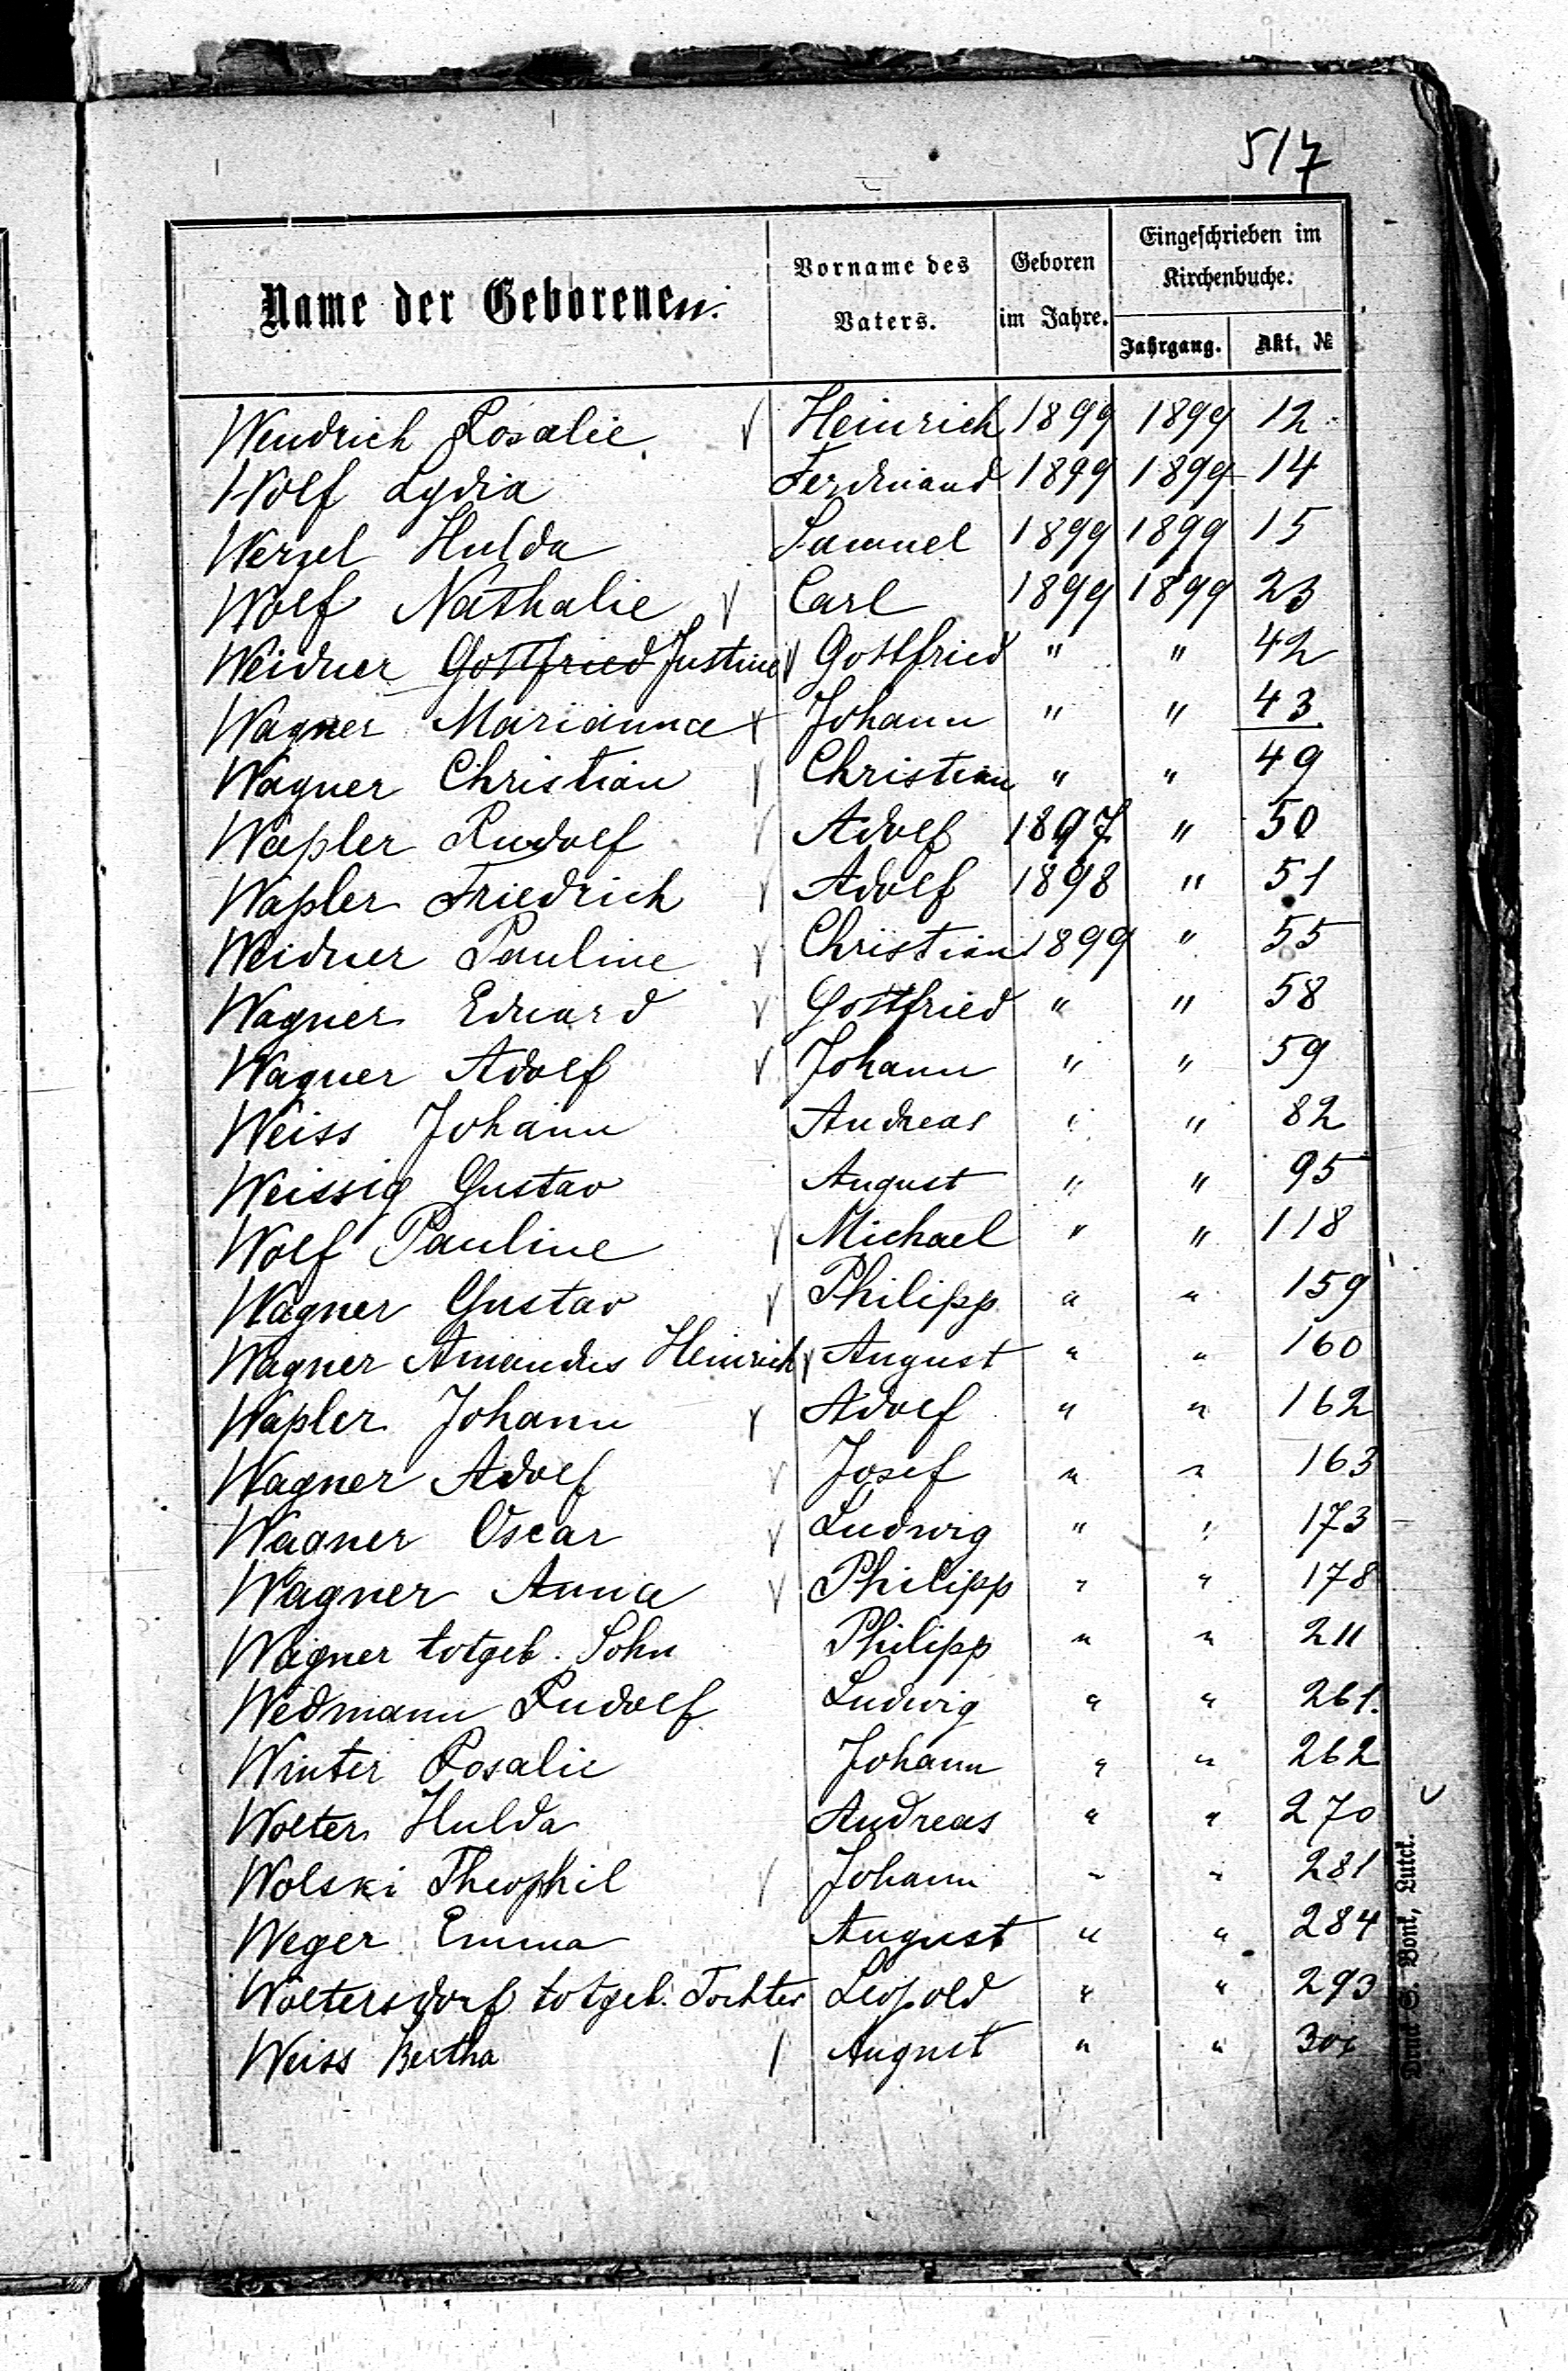 517
Name der Geborenen.
Vorname des Vaters.
Geboren im Jahre.
Eingeschrieben im Kirchenbuche.
Jahrgang. Akt. №
Wendrich Rosalie √ Heinrich 1899 1899 12
Wolf Lydia Ferdinand 1899 1899 14
Werzel Hulda Samuel 1899 1899 15
Wolf Nathalie √ Carl 1899 1899 23
Weidner Gottfried Justine √ Gottfried " " 42
Wagner Marianna √ Johann " " 43
Wagner Christian √ Christian " " 49
Wapler Rudolf √ Adolf 1897 " 50
Wapler Friedrich √ Adolf 1898 " 51
Weidner Pauline √ Christian 1899 " 55
Wagner Eduard √ Gottfried " " 58
Wagner Adolf √ Johann " " 59
Weiss Johann Andreas " " 82
Weissig Gustav August " " 95
Wolf Pauline √ Michael " " 118
Wagner Gustav √ Philipp " " 159
Wagner Amandus Heinrich √ August " " 160
Wapler Johann √ Adolf " " 162
Wagner Adolf √ Josef " " 163
Wagner Oscar √ Ludwig " " 173
Wagner Anna √ Philipp " " 178
Wagner totgeb. Sohn Philipp " " 211
Wedmann Rudolf Ludwig " " 261.
Winter Rosalie Johann " " 262
Wolter Hulda Andreas " " 270
Wolski Theophil √ Johann " " 281
Weger Emma August " " 284
Woltersdorf totgeb. Tochter Leopold " " 293
Weiss Bertha √ August " "
Druck S. Bonk, Lutck.